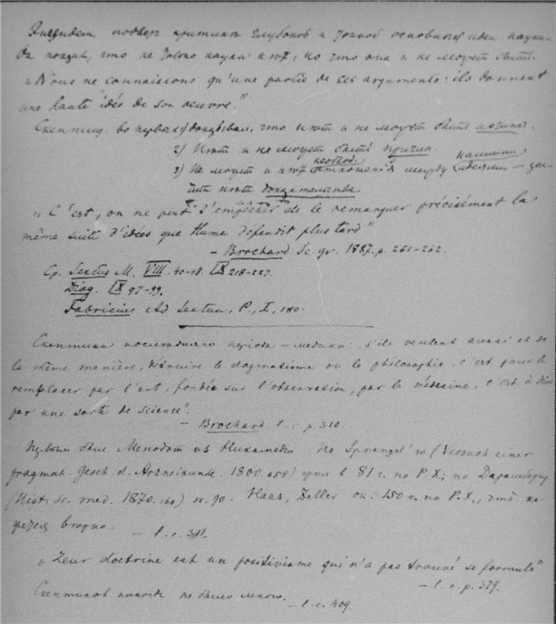 Энезидем подверг критике глубокой и тонкой основные идеи науки.
Он показал, что не только науки нѣт, но что она и не может быть.
„Nous ne connaissons qu'une partie de ses arguments: ils donnent
une haute idée de son oeuvre."
Скептики во первых) доказывали, что нѣт и не может быть истины.
2) Нѣт и не может быть причин.
3) Не может и нѣт необход. отношений между нашими идеями —
нѣт доказательства.
„C'est, on ne peut s'empêcher de le remarquer précisément la
même suite d'idées que Hume défendit plus tard"
— Brochard Sc. gr. 1887. p. 261-262.
Ср. Sextus M. VIII. 40-48. IX 218-227.
Diog. IX 97-99.
Fabricius Ad Sextum, P, I, 180.
Скептики последняго періода — медики: s'ils veulent aussi et de
la même manière, détruire le dogmatisme ou la philosophie, c'est pour le
remplacer par l'art, fondée sur l'observation, par la médecine, c'est à dire
par une sorte de science".
— Brochard l. c. p. 310
Первым был Менодот из Никомедии. По Sprengel'ю (Versuch einer
fragmat. Gesch. d. Arzneikunde. 1800. 658) в 81 г. по Р.Х.; по Дарамбергу
(Hist. sc. med. 1870. 160) 90. Haas, Zeller ок. 150 г. по Р.Х., что
— l. c. 311.
„Leur doctrine est un positivisme qui n'a pas trouvé sa formule"
— l. c. p. 379.
Скептиков никогда не было много.
— l. c. 409.